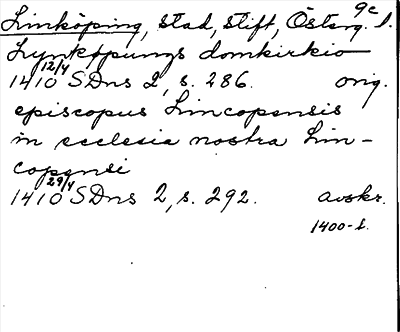 9c
Linköping, stad, stift, Österg. l.
Lynkøpungs domkirkio
1410 12/4 SDns 2, s. 286. orig.
episcopus Lincopensis
in ecclesia nostra Lin-
copensi
1410 29/4 SDns 2, s. 292. avskr.
1400-t.